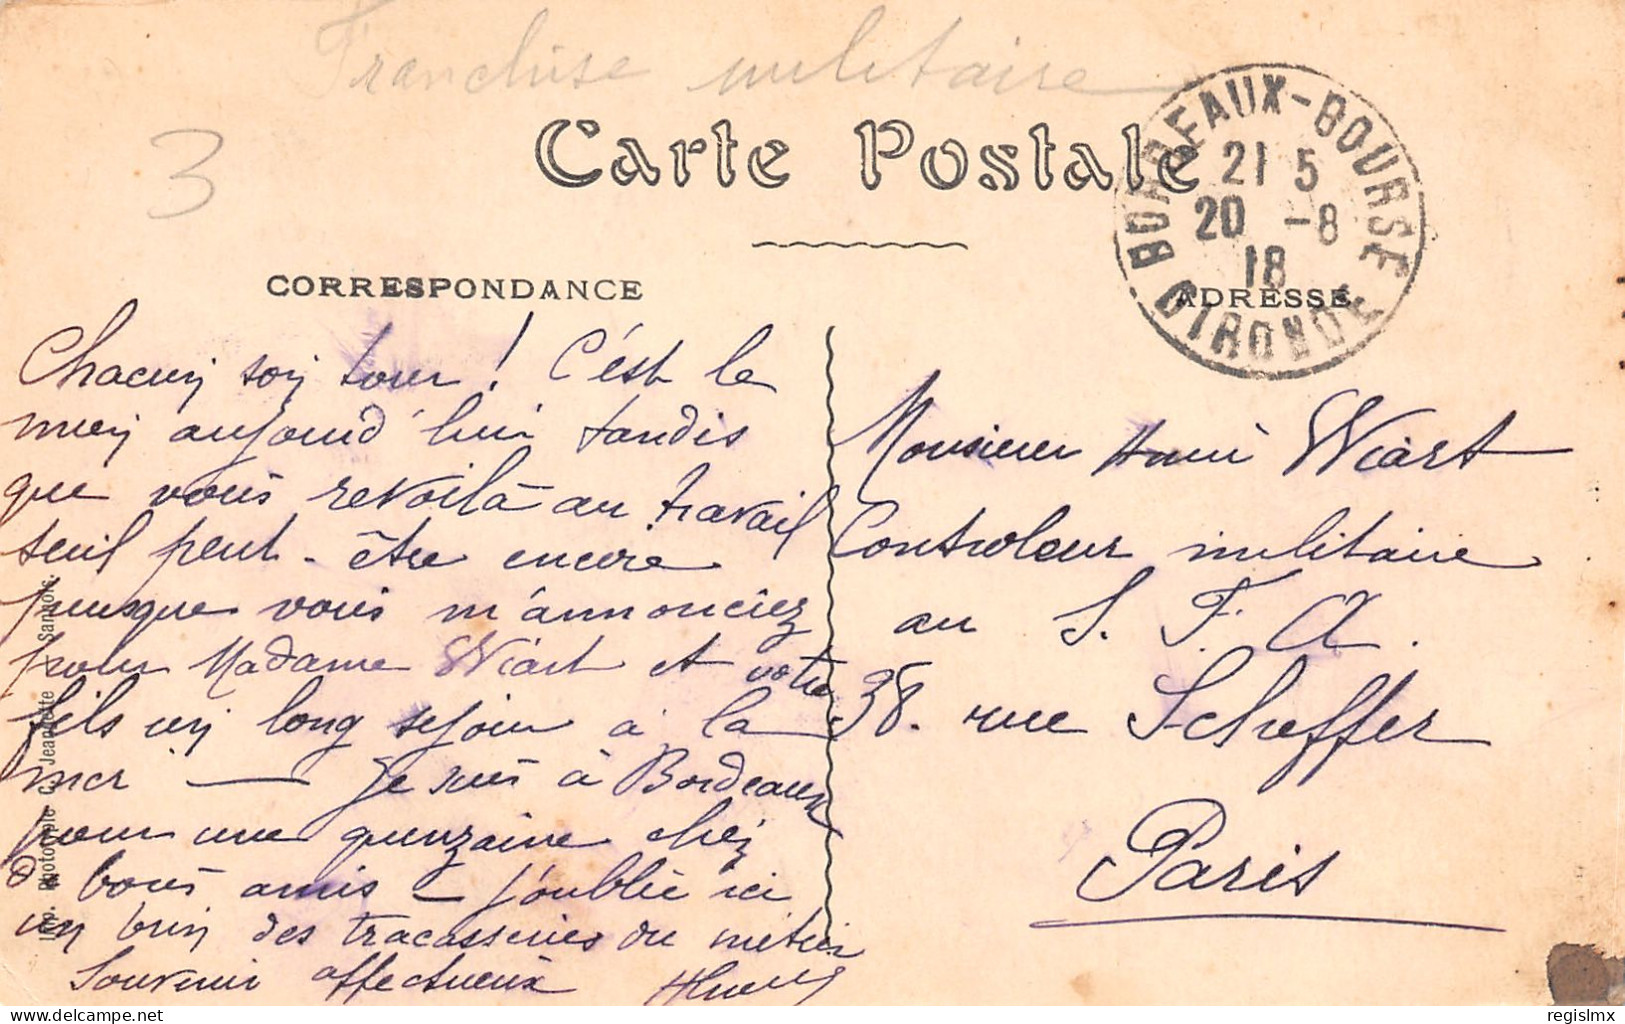 Franchise militaire
3
Carte Postale
BORDEAUX-BOURSE
21 5
20 -8
18
GIRONDE
CORRESPONDANCE
ADRESSE
Chacun son tour ! C'est le
mien aujourd'hui tandis
que vous revoilà au travail
seul peut-être encore
puisque vous m'annonciez
pour Madame Wiart et votre
fils un long séjour à la
mer — Je suis à Bordeaux
pour une quinzaine chez
de bons amis — j'oublie ici
un brin des tracasseries du métier
Souvenir affectueux
Monsieur Henri Wiart
Controleur militaire
au S. F. A.
38. rue Scheffer
Paris
Imp. Phototypie Jeannette Sannois.
delcampe.net
regislmx